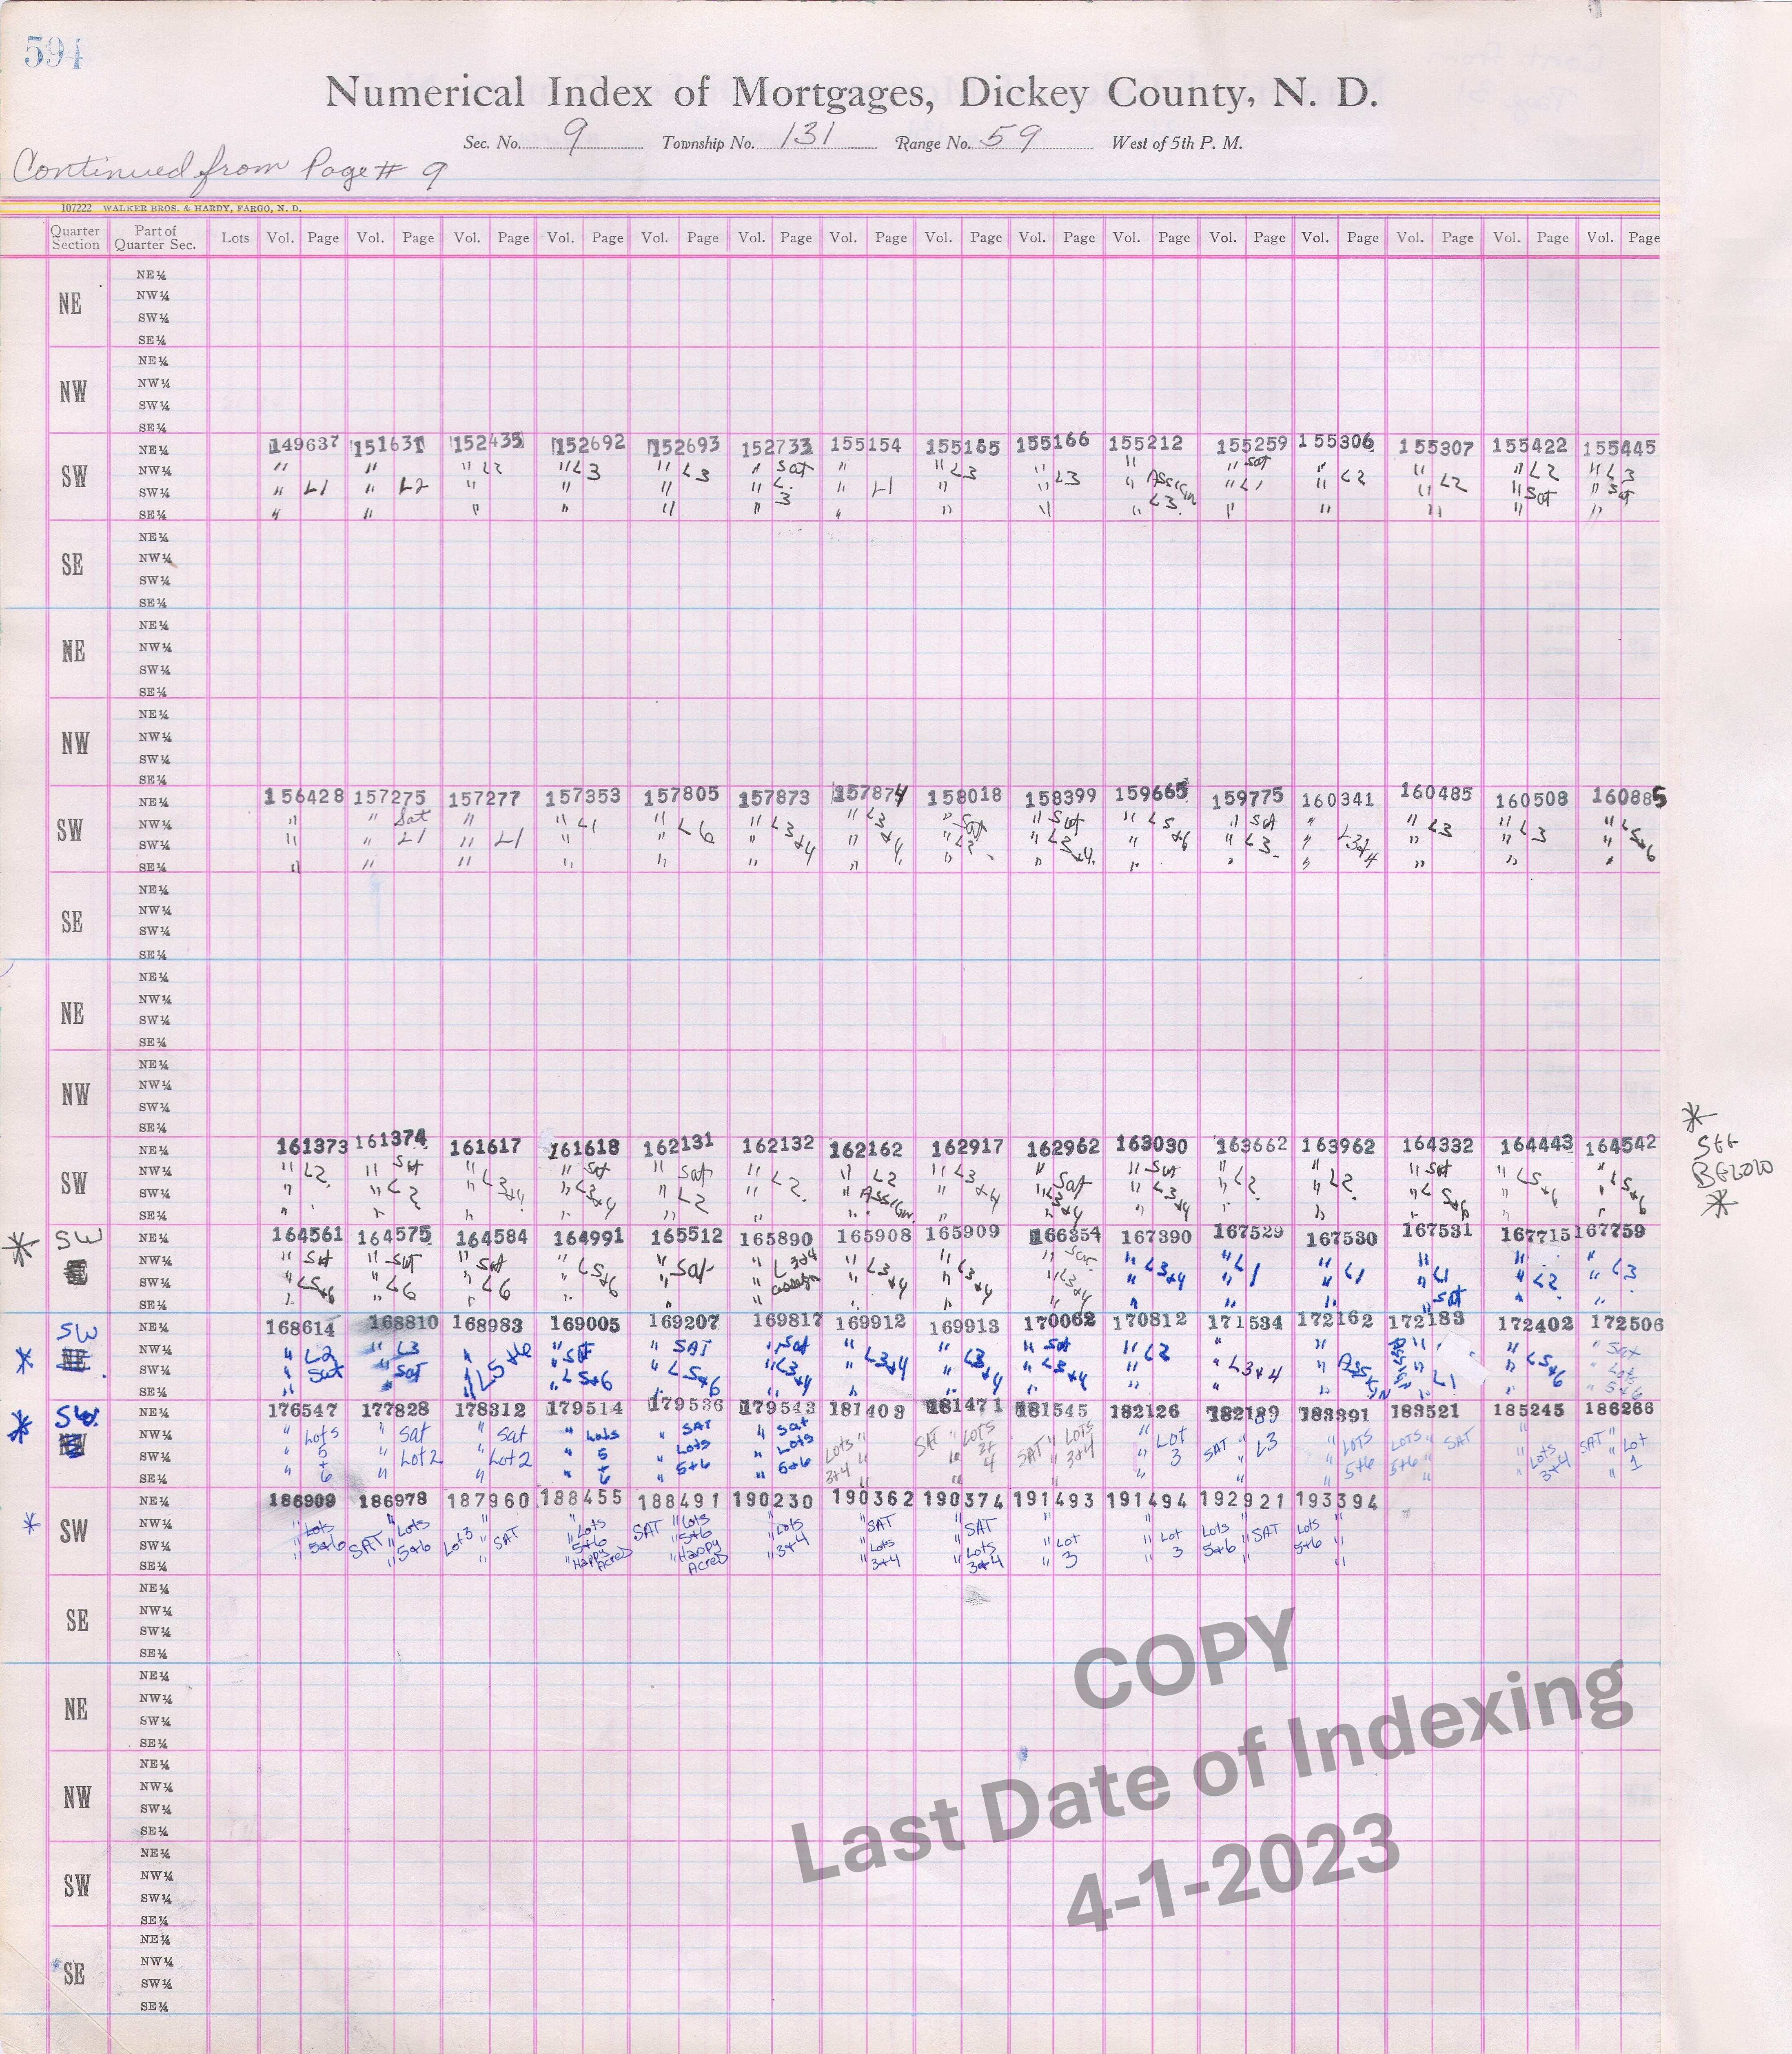 594
Numerical Index of Mortgages, Dickey County, N. D.
Sec. No. 9 Township No. 131 Range No. 59 West of 5th P. M.
Continued from Page # 9
107222 WALKER BROS. & HARDY, FARGO, N. D.
Quarter Section Part of Quarter Sec. Lots Vol. Page Vol. Page Vol. Page Vol. Page Vol. Page Vol. Page Vol. Page Vol. Page Vol. Page Vol. Page Vol. Page Vol. Page Vol. Page Vol. Page Vol. Page
NE
NE¼
NW¼
SW¼
SE¼
NW
NE¼
NW¼
SW¼
SE¼
SW
NE¼ 149637 151631 152435 152692 152693 152733 155154 155165 155166 155212 155259 155306 155307 155422 155445
NW¼ " " " L2 " L3 " L3 " Sat " " L3 " " " Sat " " " L2 " L3
SW¼ " L1 " L2 " " " " L. 3 " L1 " " L3 " Assign L3. " L1 " L2 " L2 " Sat " Sat
SE¼ " " " " " " " " " " " " " " "
SE
NE¼
NW¼
SW¼
SE¼
NE
NE¼
NW¼
SW¼
SE¼
NW
NE¼
NW¼
SW¼
SE¼
SW
NE¼ 156428 157275 157277 157353 157805 157873 157874 158018 158399 159665 159775 160341 160485 160508 160885
NW¼ " " Sat " " L1 " " L3 " L3 " Sat " Sat " L5 " Sat " " L3 " L3 " L5
SW¼ " " L1 " L1 " " L6 " +4 " +4 " L2. " L3 " +6 " L3. " L3+4 " " " +6
SE¼ " " " " " " " " " +4. " " " " " "
SE
NE¼
NW¼
SW¼
SE¼
NE
NE¼
NW¼
SW¼
SE¼
NW
NE¼
NW¼
SW¼
SE¼
SW
NE¼ 161373 161374 161617 161618 162131 162132 162162 162917 162962 163030 163662 163962 164332 164443 164542
NW¼ " L2. " Sat " L3 " Sat " Sat " L2. " L2 " L3 " Sat " Sat " L2. " L2. " Sat " L5 " L5
SW¼ " " L2 " +4 " L3 " L2 " " Assign. " +4 " L3 " L3 " " " L5 " +6 " +6
SE¼ " " " " +4 " " " " " +4 " +4 " " " +6 " "
* SEE BELOW *
* SW
NE¼ 164561 164575 164584 164991 165512 165890 165908 165909 166354 167390 167529 167530 167531 167715 167759
NW¼ " Sat " Sat " Sat " L5 " " L3+4 " L3 " L3 " " L3+4 " L1 " L1 " L1 " L2 " L3
SW¼ " L5+6 " L6 " L6 " +6 " Sat " assign " +4 " +4 " L3 " " " " " "
SE¼ " " " " " " " " " +4 " " " " Sat " "
* SW
NE¼ 168614 168810 168983 169005 169207 169817 169912 169913 170062 170812 171534 172162 172183 172402 172506
NW¼ " L2 " L3 " " Sat " SAT " Sat " " L3 " Sat " L3 " " " " " Sat
SW¼ " Sat " Sat " L5+6 " L5+6 " L5+6 " L3 " L3+4 " +4 " L3+4 " " L3+4 " Assign " L1 " L5+6 " Lots
SE¼ " " " " " " +4 " " " " " " " " 5+6
* SW
NE¼ 176547 177828 178312 179514 179536 179543 181403 181471 181545 182126 182189 183391 183521 185245 186266
NW¼ " Lots " Sat " Sat " Lots " SAT " Sat " SAT " Lots " Lots " Lot " " Lots Lots " SAT " SAT " Lot
SW¼ " 5 " Lot 2 " Lot 2 " 5 " Lots " Lots Lots " " 3+4 SAT " 3+4 " 3 SAT " L3 " 5+6 5+6 " " Lots " 1
SE¼ " + 6 " " " + 6 " 5+6 " 5+6 3+4 " " " " " " " " 3+4 "
* SW
NE¼ 186909 186978 187960 188455 188491 190230 190362 190374 191493 191494 192921 193394
NW¼ " Lots " Lots Lot 3 " " Lots " Lots " Lots " SAT " SAT " " Lots " Lots "
SW¼ " 5+6 SAT " 5+6 " SAT " 5+6 SAT " 5+6 " 3+4 " Lots " Lots " Lot " Lot 5+6 " SAT 5+6 "
SE¼ " " " " Happy Acres " Happy Acres " " 3+4 " 3+4 " 3 " 3 " "
SE
NE¼
NW¼
SW¼
SE¼
NE
NE¼
NW¼
SW¼
SE¼
NW
NE¼
NW¼
SW¼
SE¼
SW
NE¼
NW¼
SW¼
SE¼
SE
NE¼
NW¼
SW¼
SE¼
COPY
Last Date of Indexing
4-1-2023